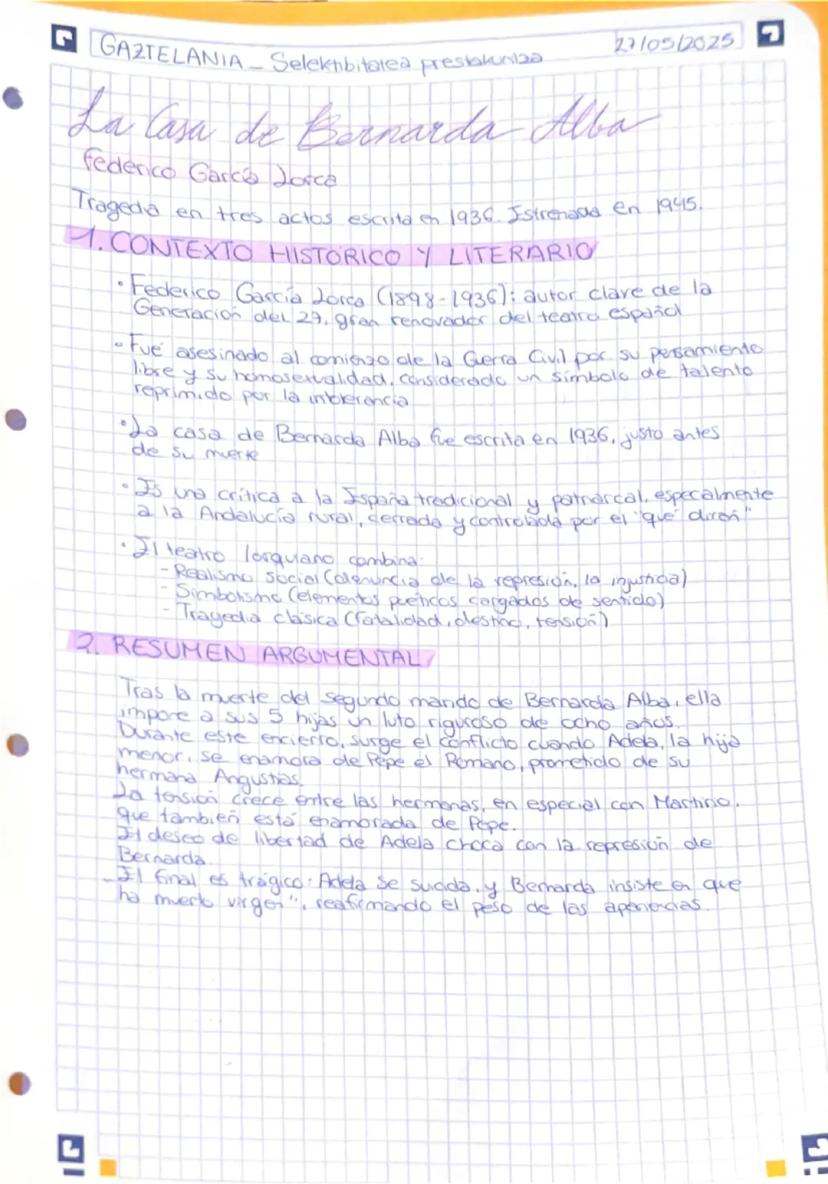 GAZTELANIA - Selektibitatea prestakuntza
27/05/2025
La Casa de Bernarda Alba
Federico García Lorca
Tragedia en tres actos escrita en 1936. Estrenada en 1945.
1. CONTEXTO HISTÓRICO Y LITERARIO
• Federico García Lorca (1898-1936): autor clave de la
Generación del 27, gran renovador del teatro español
• Fue asesinado al comienzo de la Guerra Civil por su pensamiento
libre y su homosexualidad, considerado un símbolo de talento
reprimido por la intolerencia
• La casa de Bernarda Alba fue escrita en 1936, justo antes
de su muerte
• Es una crítica a la España tradicional y patriarcal, especialmente
a la Andalucía rural, cerrada y controlada por el "qué dirán"
• El teatro lorquiano combina:
- Realismo social (denuncia de la represión, la injusticia)
- Simbolismo (elementos poéticos cargados de sentido)
- Tragedia clásica (fatalidad, destino, tensión)
2. RESUMEN ARGUMENTAL
Tras la muerte del segundo marido de Bernarda Alba, ella
impone a sus 5 hijas un luto riguroso de ocho años.
Durante este encierro, surge el conflicto cuando Adela, la hija
menor, se enamora de Pepe el Romano, prometido de su
hermana Angustias.
La tensión crece entre las hermanas, en especial con Martirio,
que también está enamorada de Pepe.
El deseo de libertad de Adela choca con la represión de
Bernarda.
El final es trágico: Adela se suicida, y Bernarda insiste en que
"ha muerto virgen", reafirmando el peso de las apariencias.